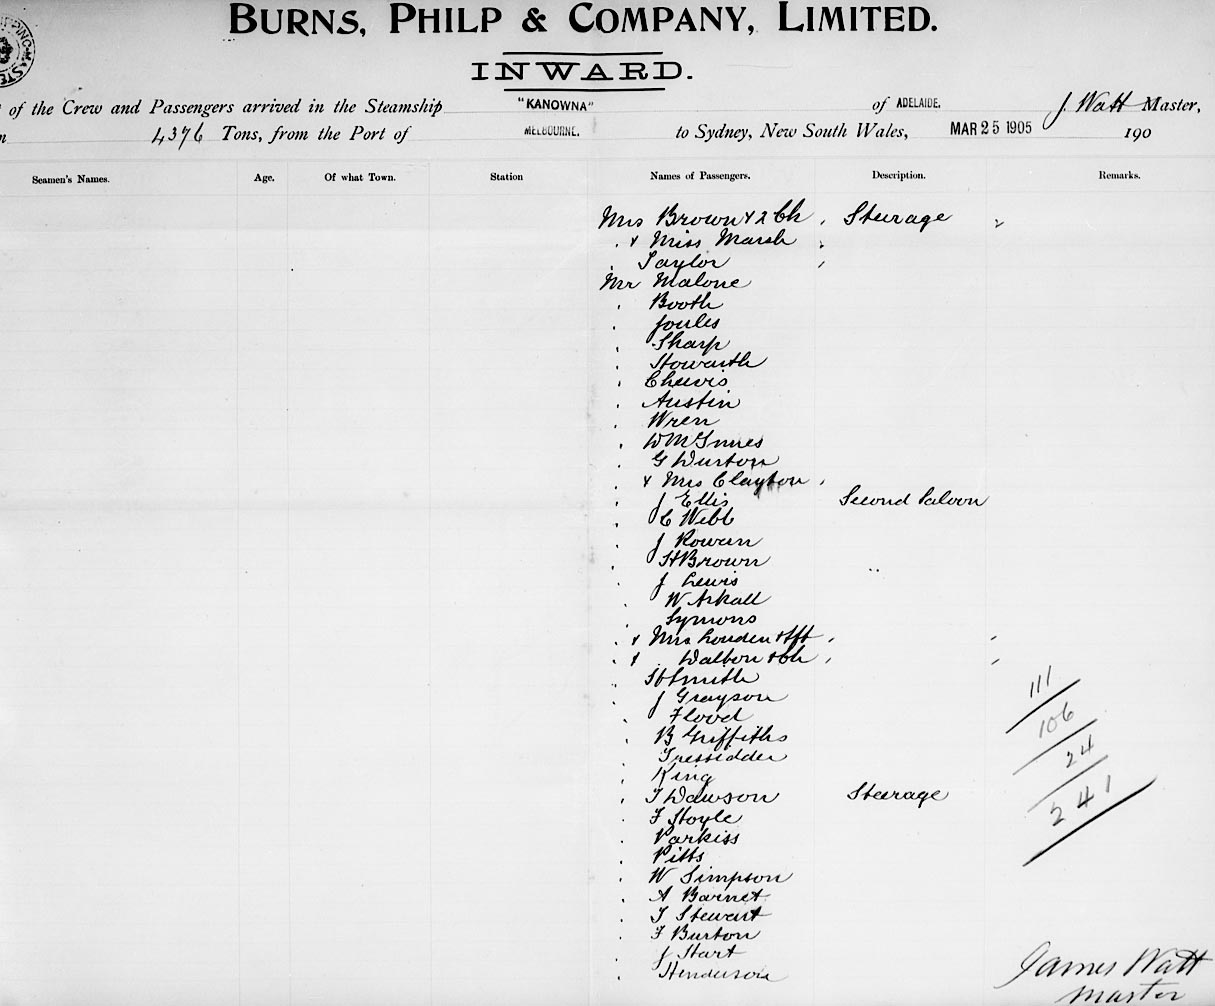 BURNS, PHILP & COMPANY, LIMITED.
INWARD.
of the Crew and Passengers arrived in the Steamship "KANOWNA" of ADELAIDE. J. Watt Master,
4376 Tons, from the Port of MELBOURNE. to Sydney, New South Wales, MAR 25 1905 190
Seamen's Names. Age. Of what Town. Station Names of Passengers. Description. Remarks.
Mrs Brown & 2 Ch Steerage
& Miss Marsh
Taylor
Mr Malone
Booth
Joules
Sharp
Howarth
Cheevis
Austin
Wren
W McInnes
G Wurton
& Mrs Clayton
J Ellis Second Saloon
C Webb
J Rowan
H Brown "
J Lewis
W Arkall
Symons
& Mrs Louden &
& " Walton & Ch
Smith
J Grayson
Flood
B Griffiths
Tressidder
King
T Dawson Steerage
F Hoyle
Parkiss
Pitts
W Simpson
A Barnet
T Stewart
F Burton
J Hart
Henderson
111
106
24
241
James Watt
Master